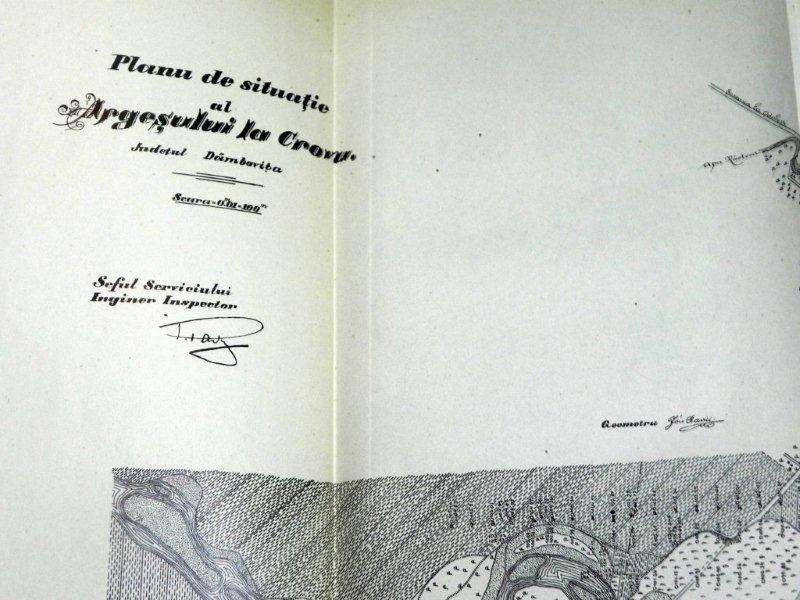 Planu de situație
al
Argeșului la Crovu
Județul Dâmbovița
Scara=0m01=100m
Șeful Serviciului
Inginer Inspector
Geometru
Apa
la